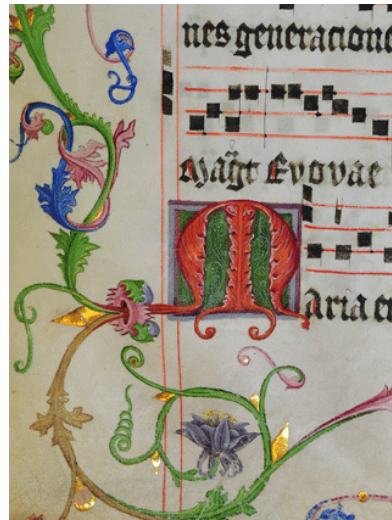 nes generacione
Magt Evovae
Maria en